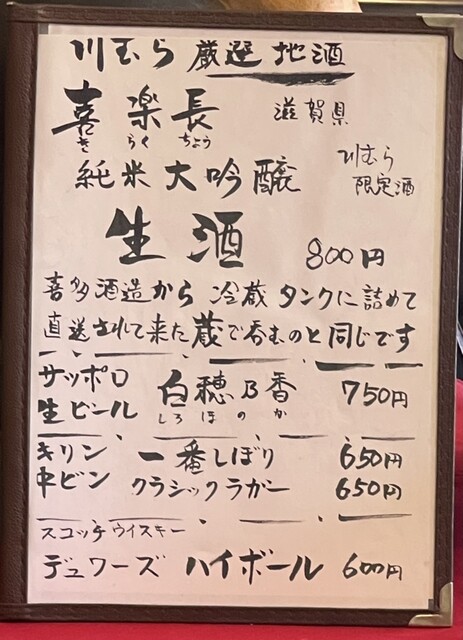 川むら 厳選 地酒
喜楽長 滋賀県
きらくちょう
純米大吟醸 川むら限定酒
生酒 800円
喜多酒造から 冷蔵タンクに詰めて
直送されて来た蔵で呑むのと同じです
サッポロ生ビール 白穂乃香 750円
しろほのか
キリン中ビン 一番しぼり 650円
クラシックラガー 650円
スコッチウイスキー
デュワーズ ハイボール 600円